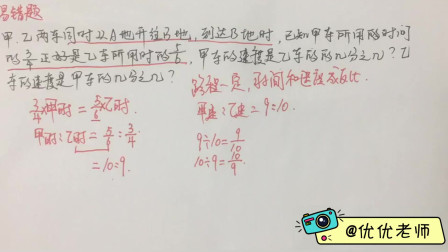 易错题
甲、乙两车同时从A地开往B地,到达B地时,已知甲车所用的时间
的3/4正好是乙车所用时的5/6,甲车的速度是乙车的几分之几?乙
车的速度是甲车的几分之几?
路程一定,时间和速度成反比.
3/4×甲时=5/6×乙时
甲速:乙速=9:10.
甲时:乙时=5/6:3/4
=10:9.
9÷10=9/10
10÷9=10/9.
@优优老师